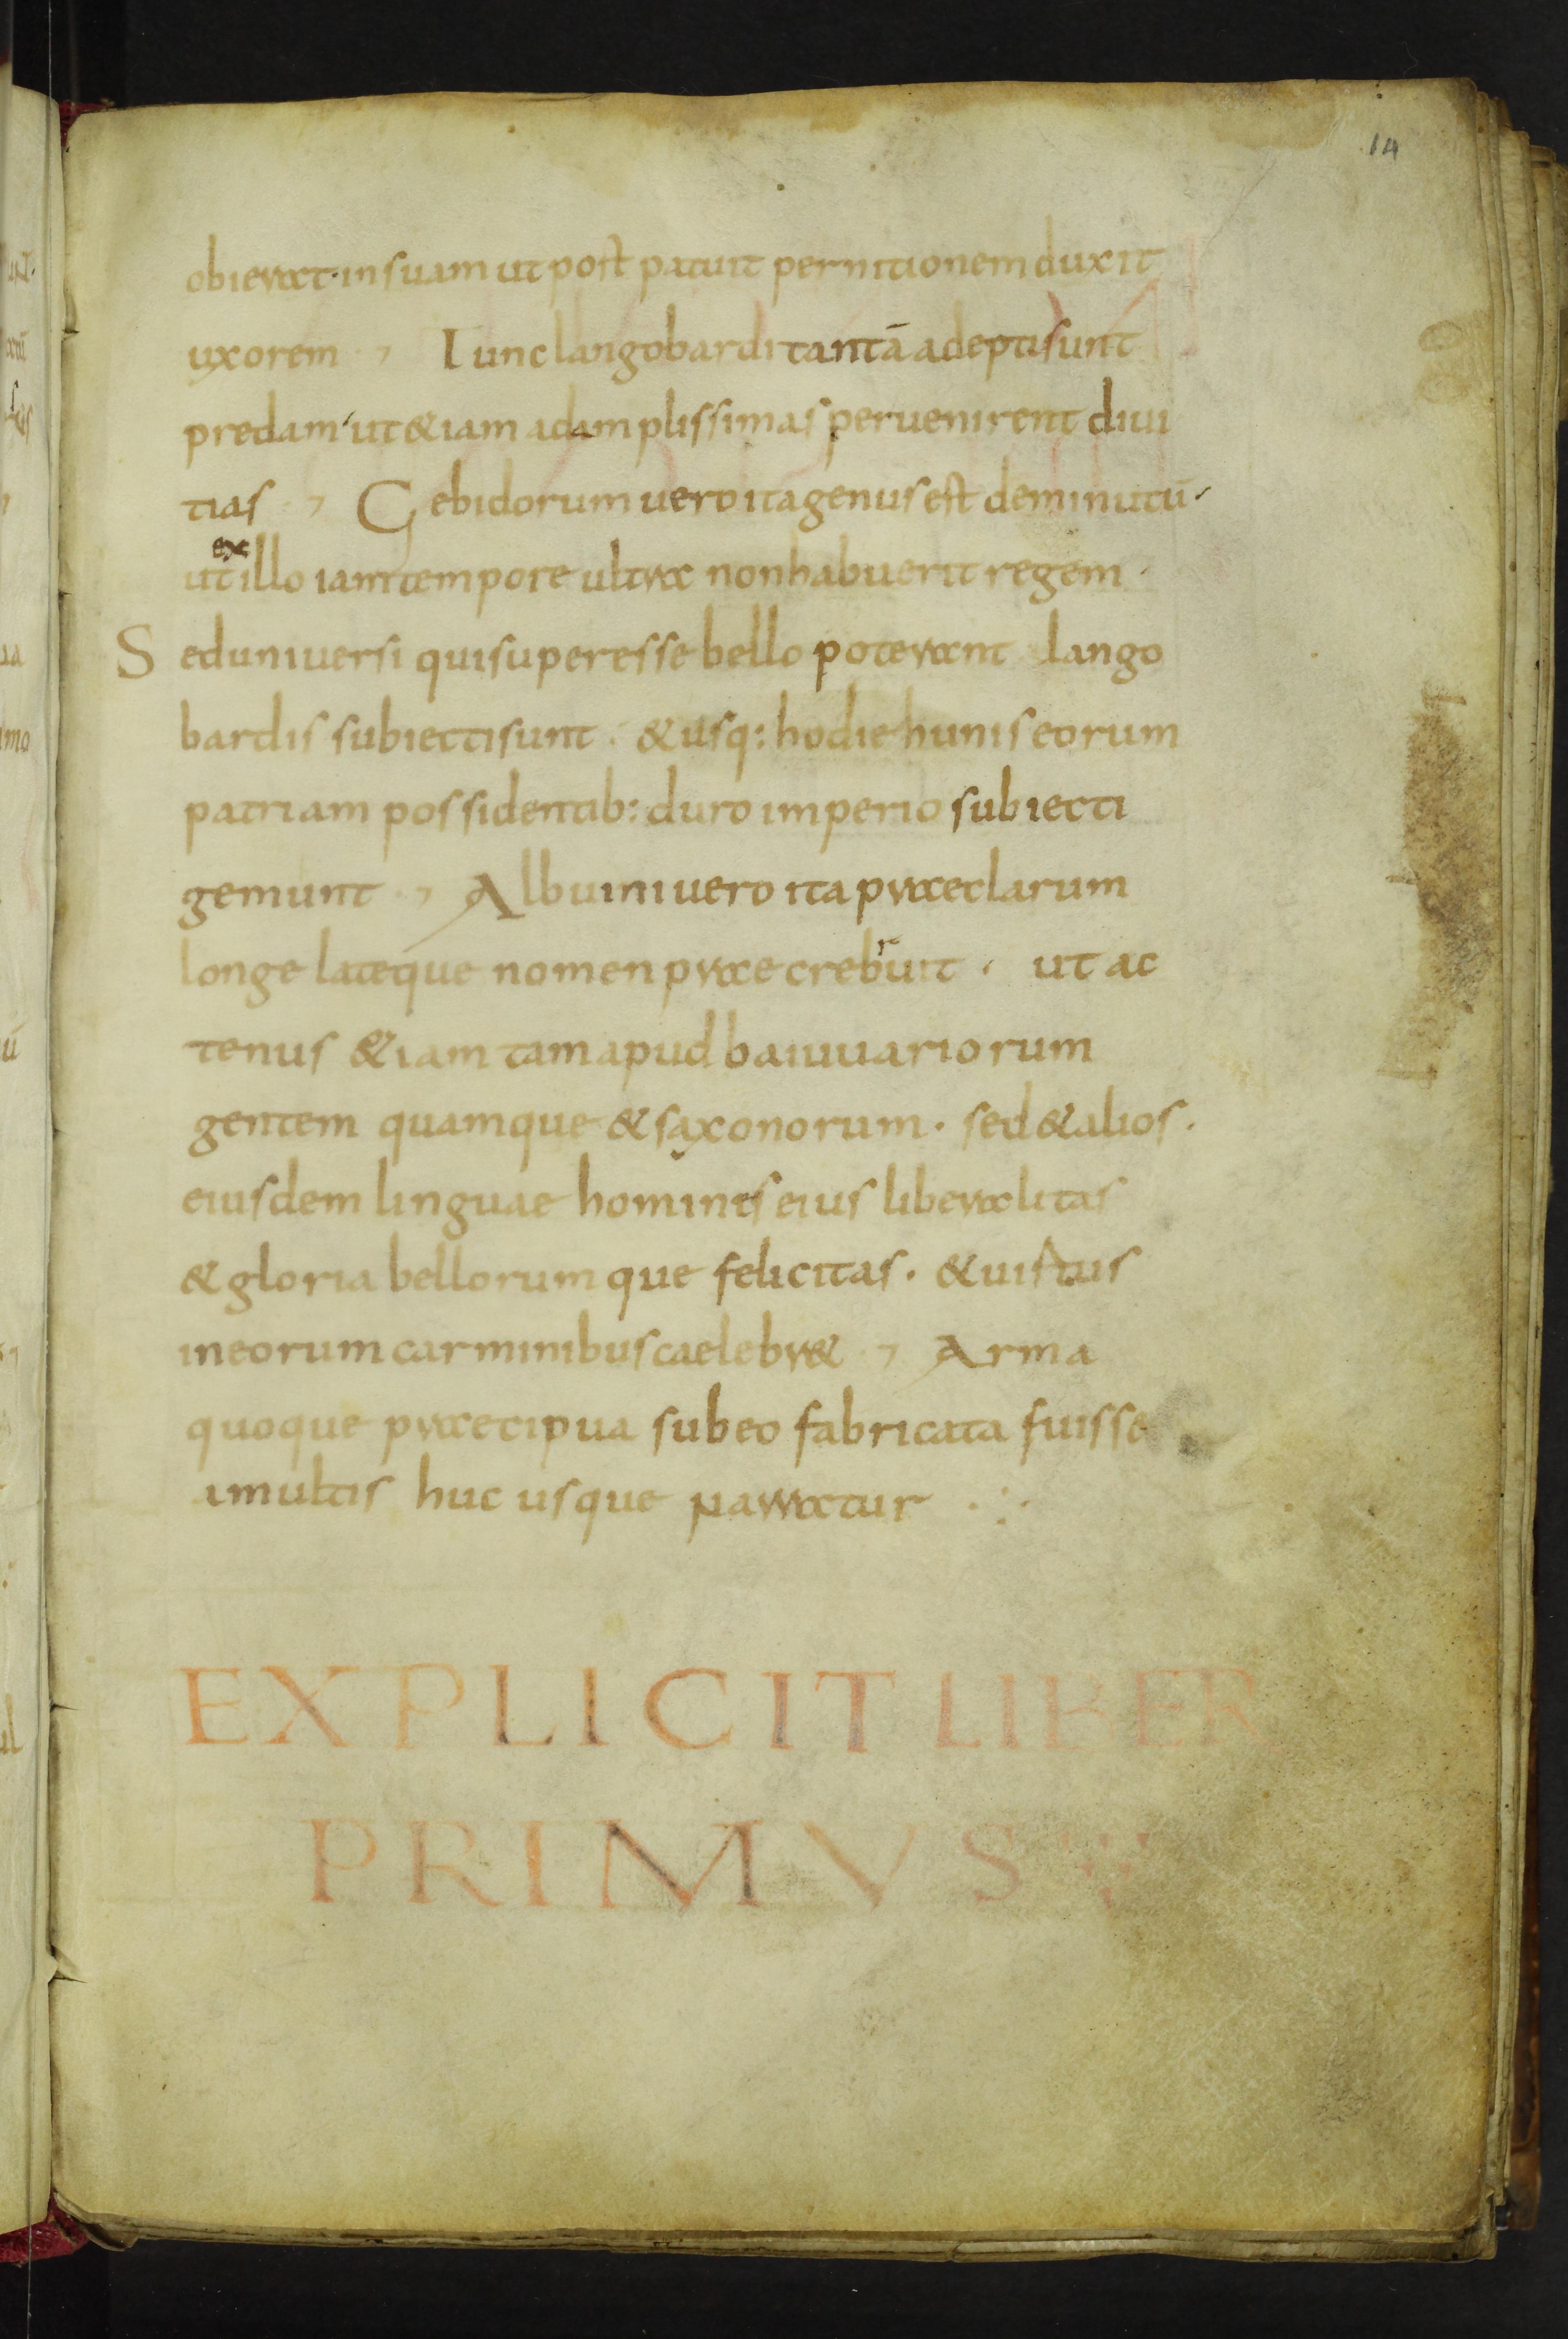 14
obierat· in suam ut post patuit pernitionem duxit
uxorem , Tunc langobardi tantā adepti sunt
predam ut &iam ad amplissimas peruenirent diui
tias , Gebidorum uero ita genus est deminutū·
ut ex illo iam tempore ultra non habuerit regem·
Sed uniuersi qui superesse bello poterant lango
bardis subiecti sunt· & usq: hodie hunis eorum
patriam possidentib: duro imperio subiecti
gemunt , Albuini uero ita praeclarum
longe lateque nomen praecrebruit · ut ac
tenus &iam tam apud baiuuariorum
gentem quamque & saxonorum· sed & alios·
eiusdem linguae homines eius liberalitas
& gloria bellorumque felicitas· & uirtus
in eorum carminibus caelebr& , Arma
quoque praecipua sub eo fabricata fuisse
a multis huc usque narratur
EXPLICIT LIBER
PRIMVS